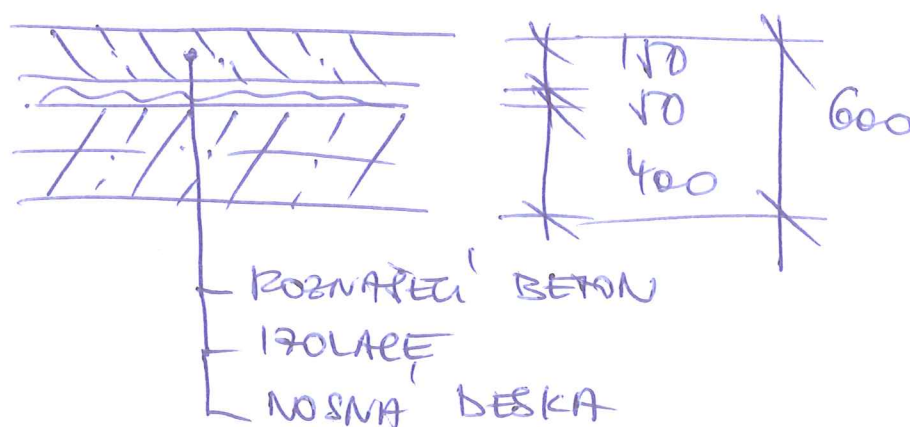 150
50
600
400
ROZNÁŠECÍ BETON
IZOLACE
NOSNÁ DESKA